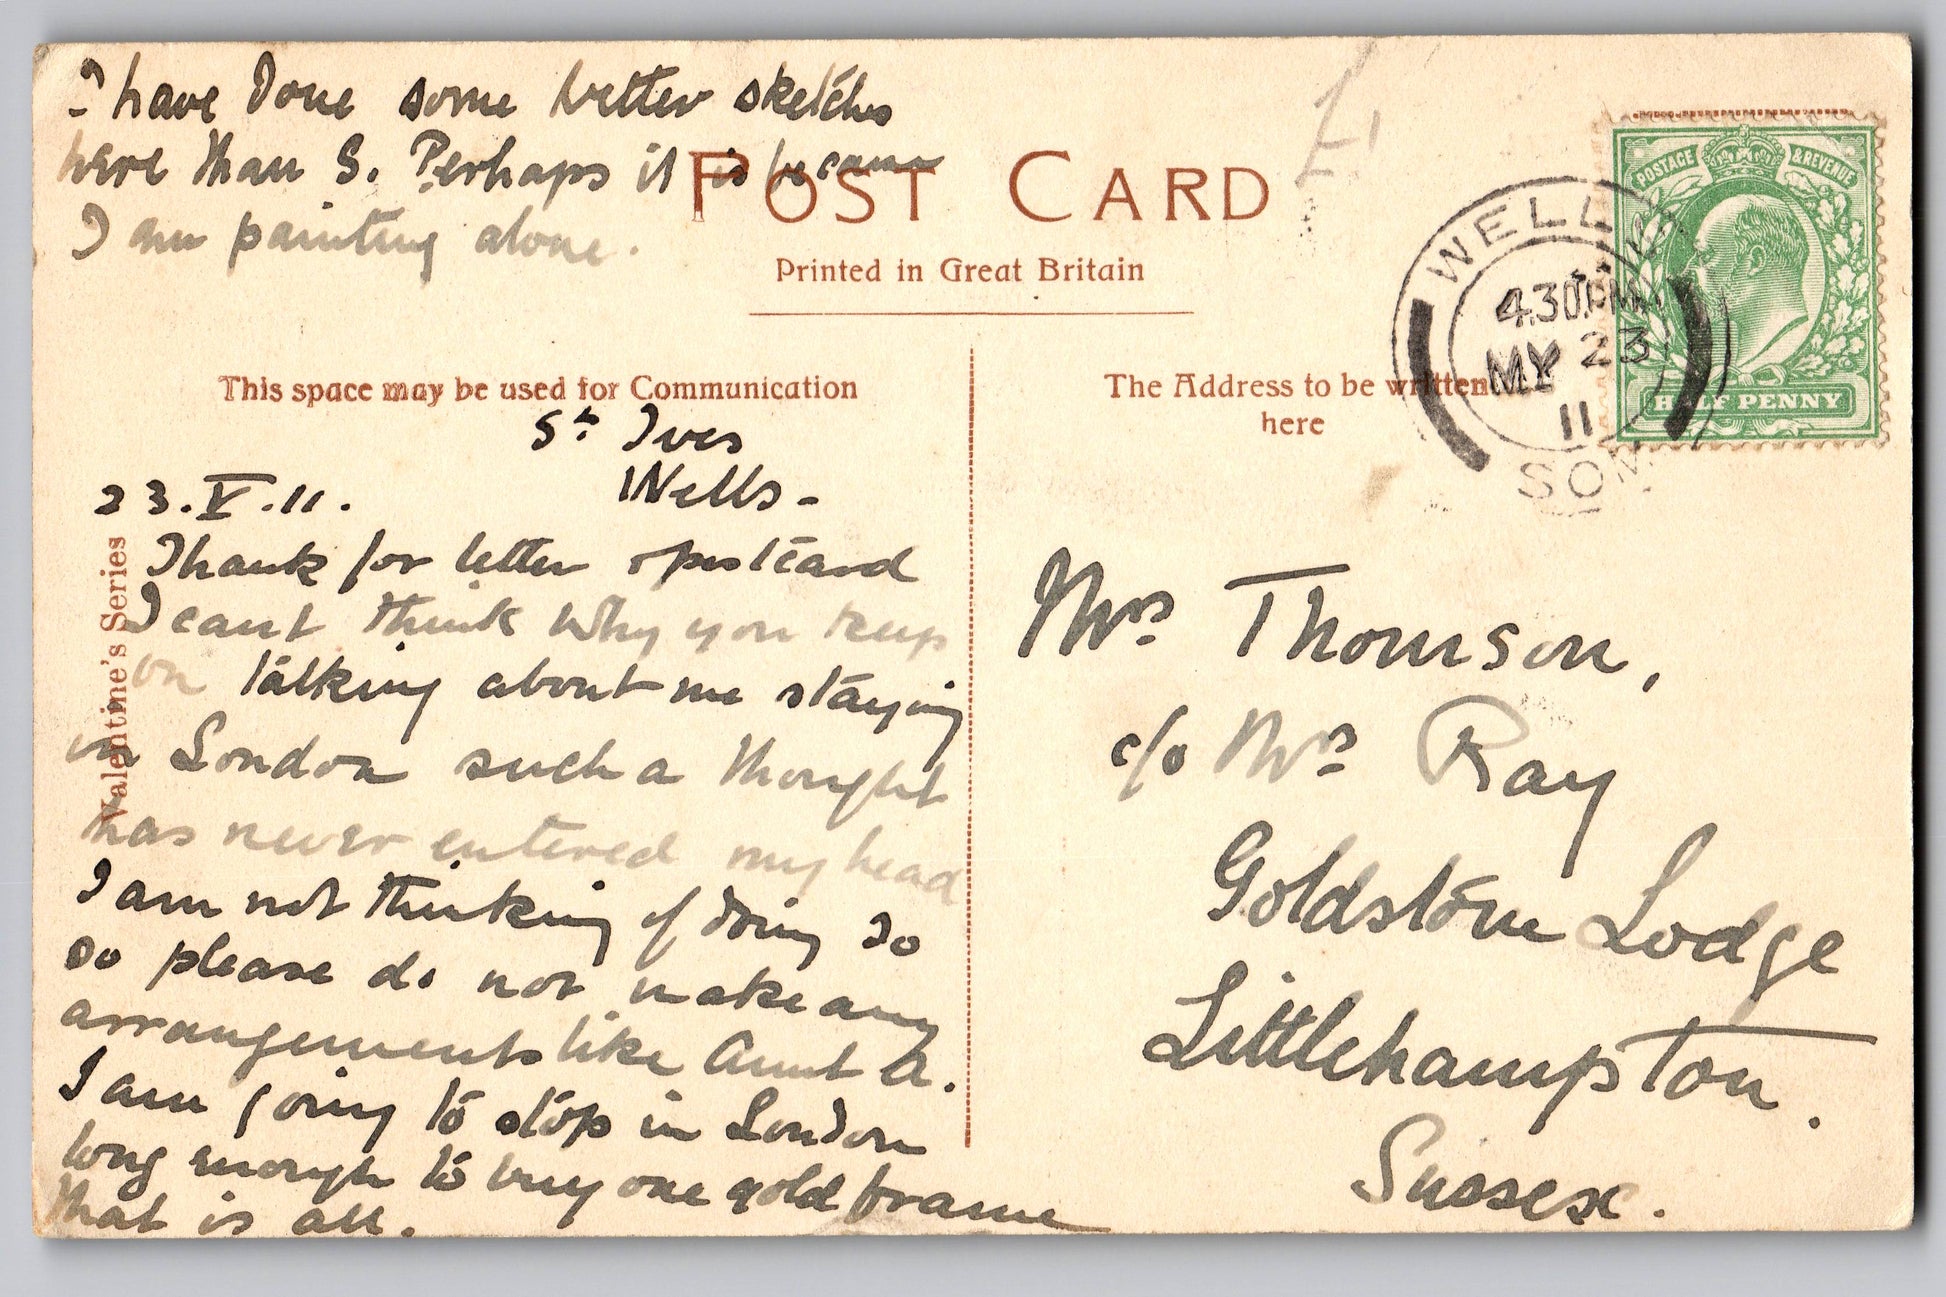 I have done some better sketches
here than S. Perhaps it is because
I am painting alone.
POST CARD
Printed in Great Britain
This space may be used for Communication
The Address to be written
here
POSTAGE & REVENUE
HALF PENNY
WELLS
4.30 PM
MY 23
11
SOM
£1
St. Ives
Wells -
23.V.11.
Thank for letter & postcard
I cant think why you keep
on talking about me staying
in London such a thought
has never entered my head
I am not thinking of doing so
so please do not make any
arrangements like Aunt A.
I am going to stop in London
long enough to buy one gold frame
that is all.
Valentine's Series
Mrs Thomson,
c/o Mrs Ray
Goldstone Lodge
Littlehampton.
Sussex.